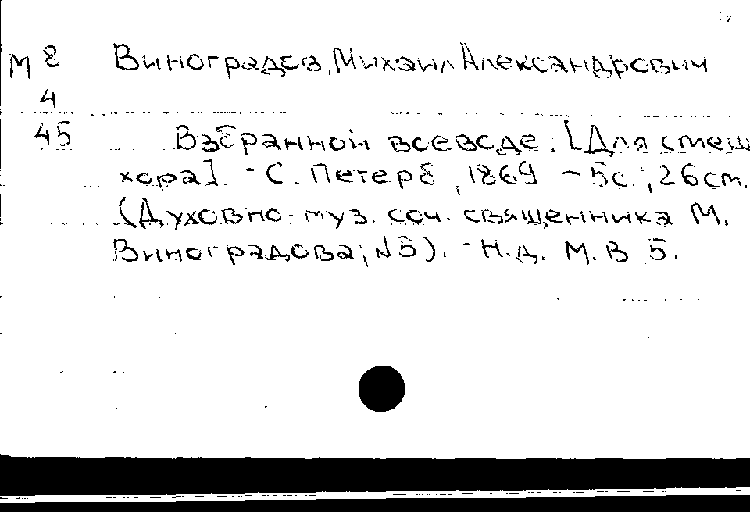 М 8 Виноградов, Михаил Александрович
4
45 Взбранной воеводе. [Для смеш.
хора]. - С. Петерб, 1869 - 5с.; 26см.
(Духовно-муз. соч. священника М.
Виноградова; №5). - Н.д. М. В 5.